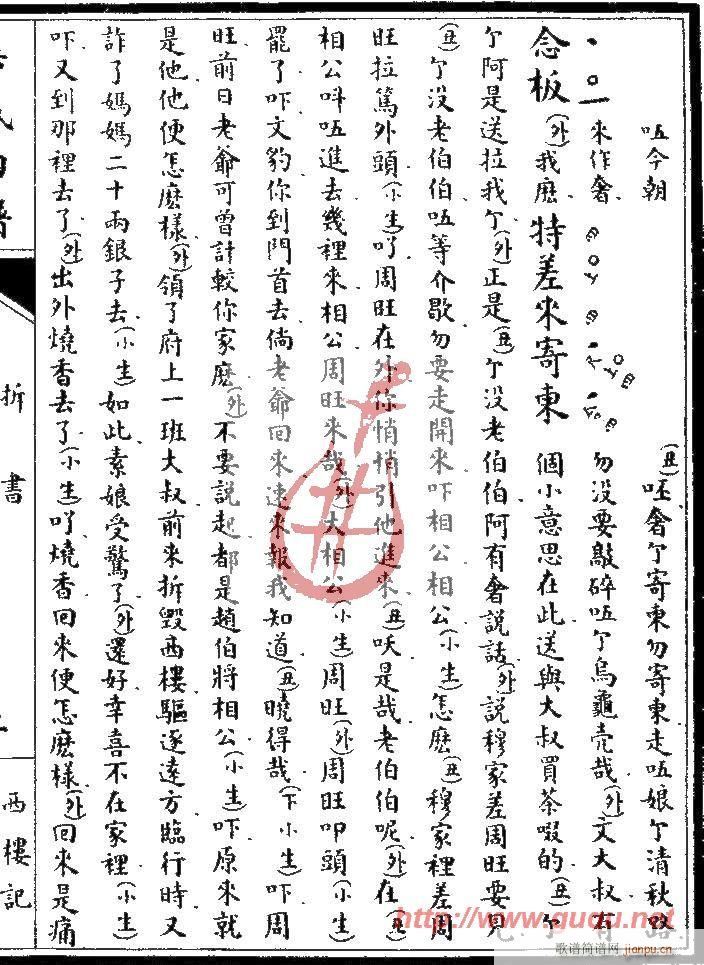 唔今朝
來作奢
(丑)呸奢亇寄柬勿寄柬走唔娘亇清秋路
勿沒要敲碎唔亇烏龜壳哉(外)文大叔有
念板(外)我麽特差來寄柬個小意思在此送與大叔買茶啜的(丑)亇
亇阿是送拉我亇(外)正是(丑)亇沒老伯伯阿有奢說話(外)說穆家差周旺要見
(丑)亇沒老伯伯唔等介歇勿要走開來吓相公相公(小生)怎麽(丑)穆家裡差周
旺拉篤外頭(小生)吖周旺在外你悄悄引他進來(丑)呅是哉老伯伯呢(外)在(丑)
相公呌唔進去幾裡來相公周旺來哉(外)大相公(小生)周旺(外)周旺叩頭(小生)
罷了吓文豹你到門首去倘老爺回來速來報我知道(丑)曉得哉(下小生)吓周
旺前日老爺可曾計較你家麽(外)不要說起都是趙伯將相公(小生)吓原來就
是他他便怎麽樣(外)領了府上一班大叔前來折毀西樓驅逐遠方臨行時又
詐了媽媽二十兩銀子去(小生)如此素娘受驚了(外)還好幸喜不在家裡(小生)
吓又到那裡去了(外)出外燒香去了(小生)吖燒香回來便怎麽樣(外)回來是痛
折書
西樓記
http://www.guqu.net
歌谱简谱网
jianpu.cn